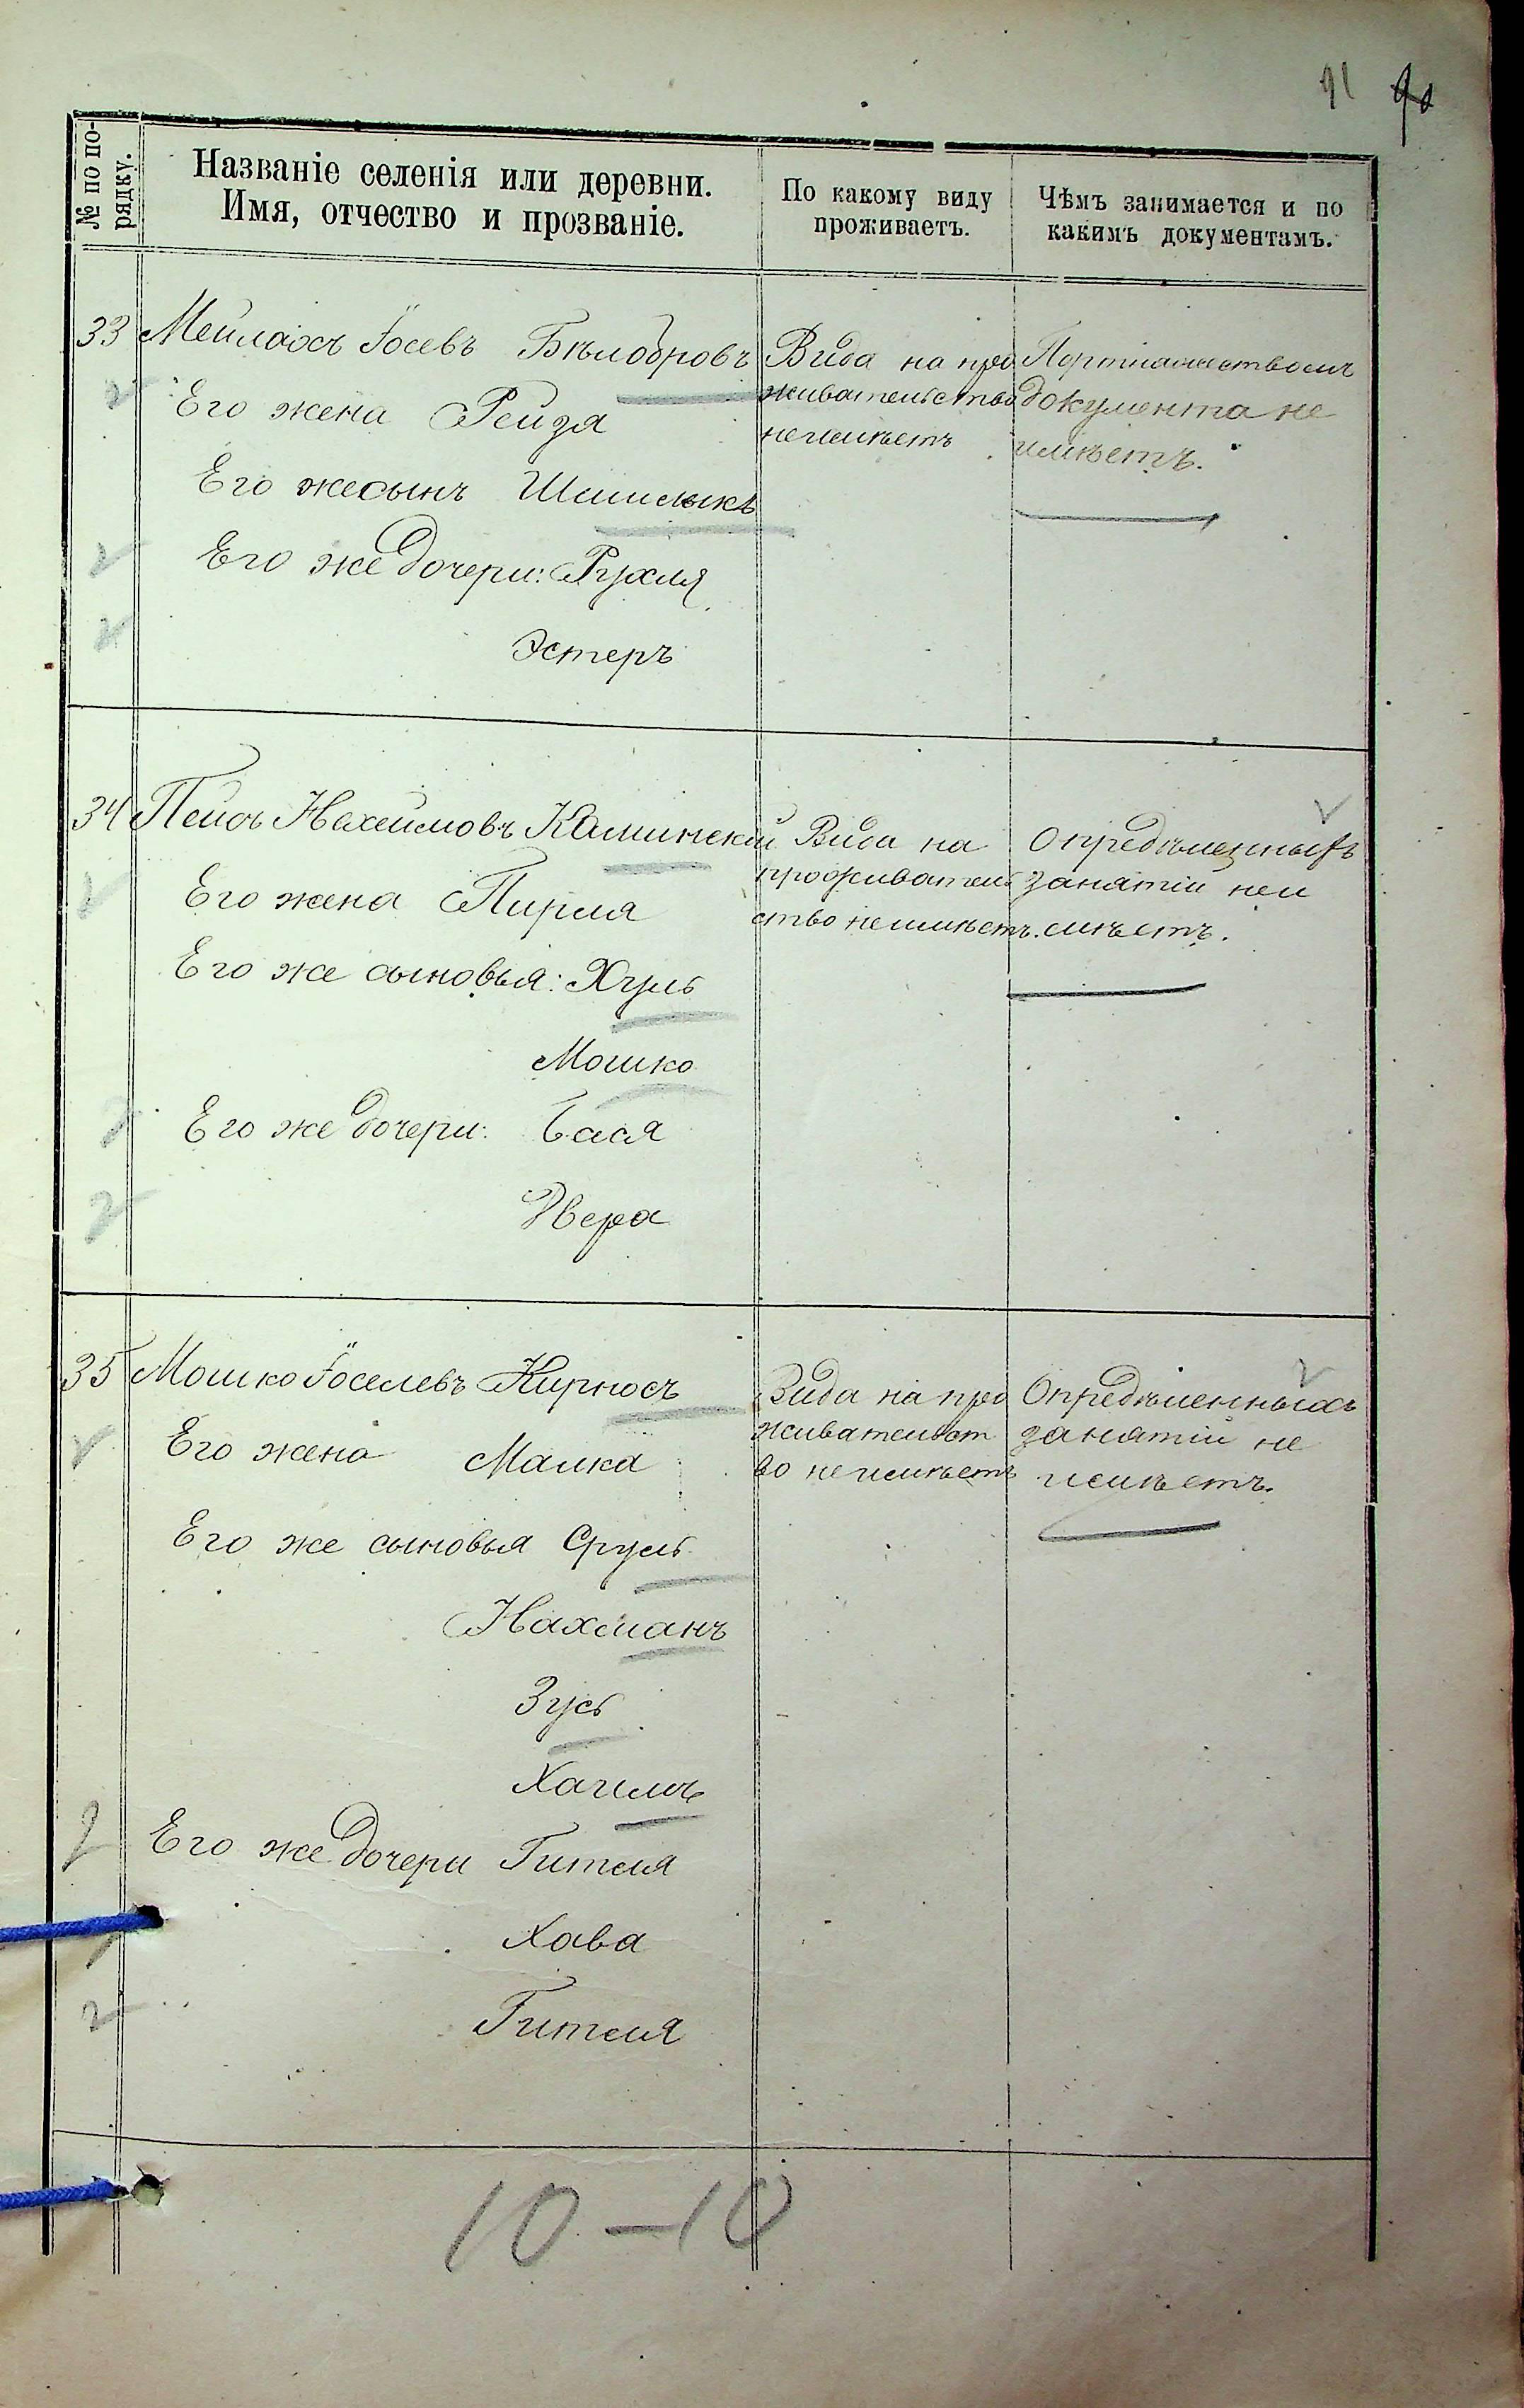 91 90
№ по по-
рядку.
Названіе селенія или деревни.
Имя, отчество и прозваніе.
По какому виду
проживаетъ.
Чѣмъ занимается и по
какимъ документамъ.
33 Мейлахъ Іосевъ Бѣлобровъ
Его жена Рейзя
Его же сынъ Шмилыкъ
Его же дочери: Рухля
Эстеръ
Вида на про
живательство
не имѣетъ
Портняжествомъ
документа не
имѣетъ.
34 Пейсъ Нахеимовъ Каминский
Его жена Пирля
Его же сыновья: Хуль
Мошко
Его же дочери: Бася
Двера
Вида на
проживатель
ство не имѣетъ.
Опредѣленныхъ
занятій не и
мѣетъ.
35 Мошко Іоселевъ Кирносъ
Его жена Малка
Его же сыновья Сруль
Нахманъ
Зусь
Хаимъ
Его же дочери Гителя
Хава
Гителя
Вида на про
живательст
во не имѣетъ
Опредѣленныхъ
занятій не
имѣетъ.
10 – 10